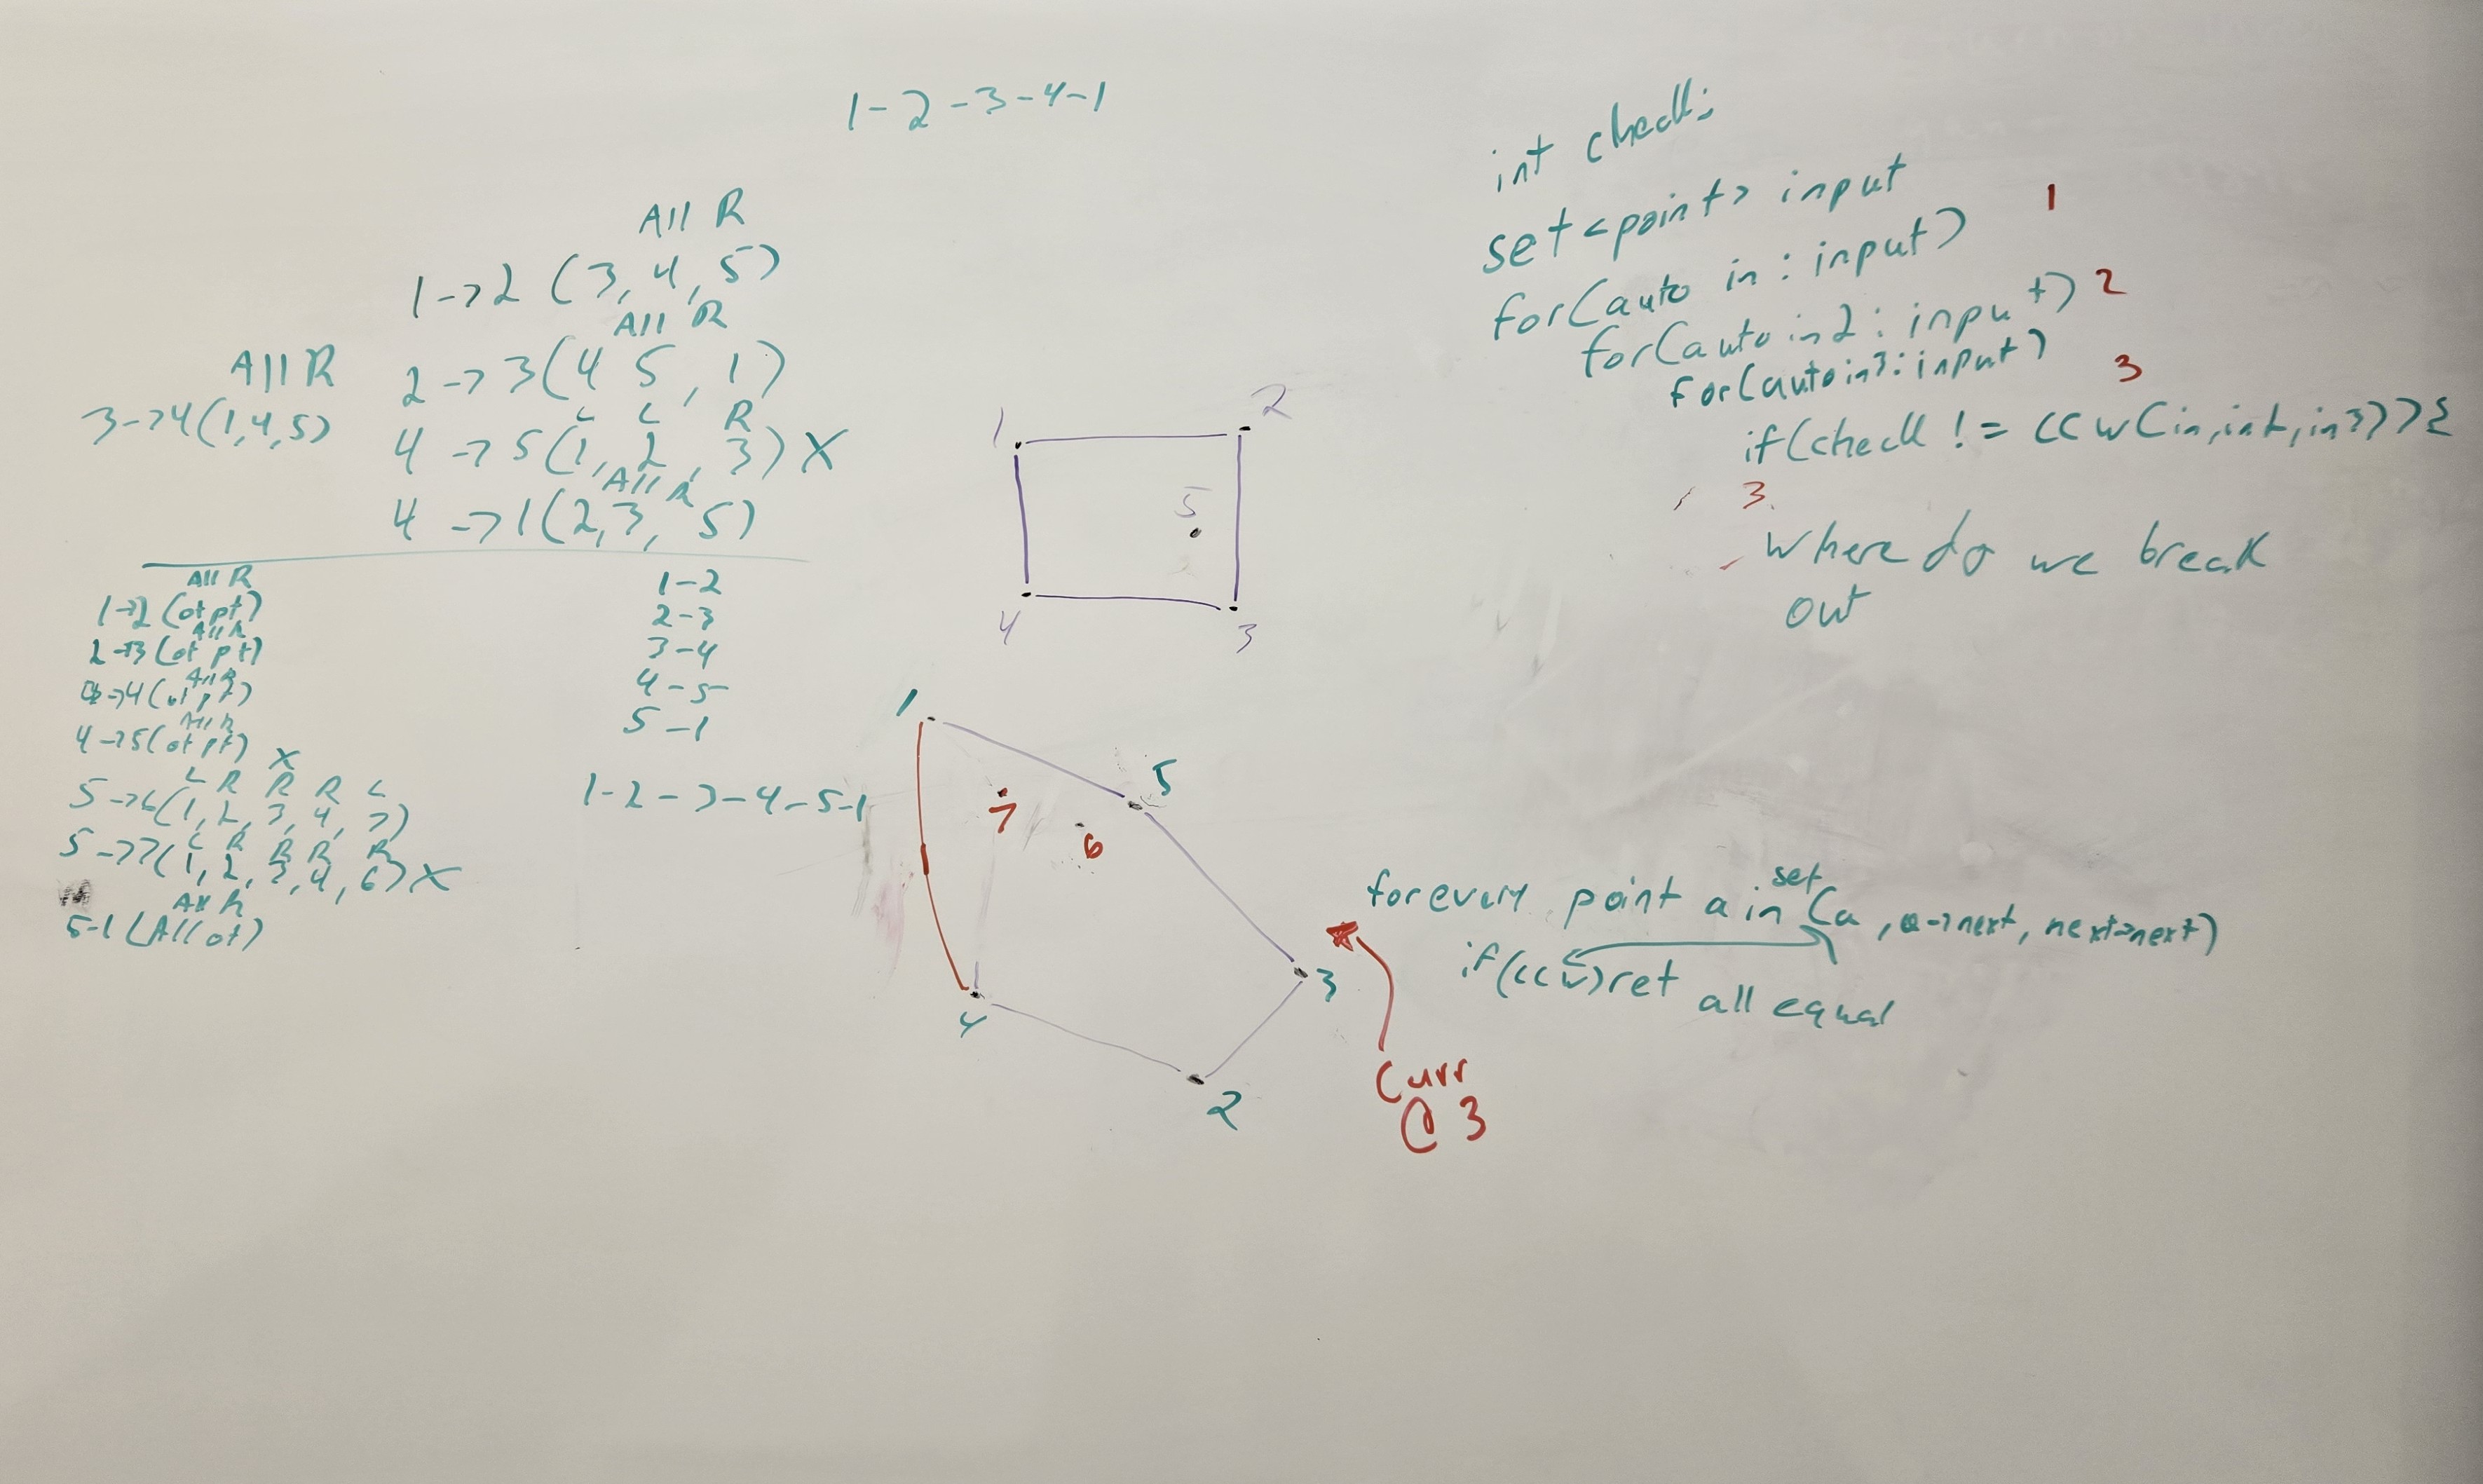 1-2-3-4-1
All R
1->2 (3,4,5)
All R
2->3(4 5,1)
L L R
4->5(1,2,3)X
All R
4->1(2,3,5)
All R
3->4(1,4,5)
All R
1->2 (ot pt)
All R
2->3 (ot pt)
All R
->4(ot pt)
All R
4->5(ot pt)
X
L R R R L
5->6(1,2,3,4,7)
L R R R R
5->7(1,2,3,4,6)X
All R
5-1(All ot)
1-2
2-3
3-4
4-5
5-1
1-2-3-4-5-1
1
2
5
4
3
1
5
7
6
3
4
2
Curr
@ 3
int check;
set<point> input
for(auto in: input) 1
for(auto in2: input) 2
for(auto in3: input) 3
if(check != ccw(in,in2,in3)){
3
where do we break
out
for every point a in set(a,a->next,next->next)
if(ccw)ret all equal